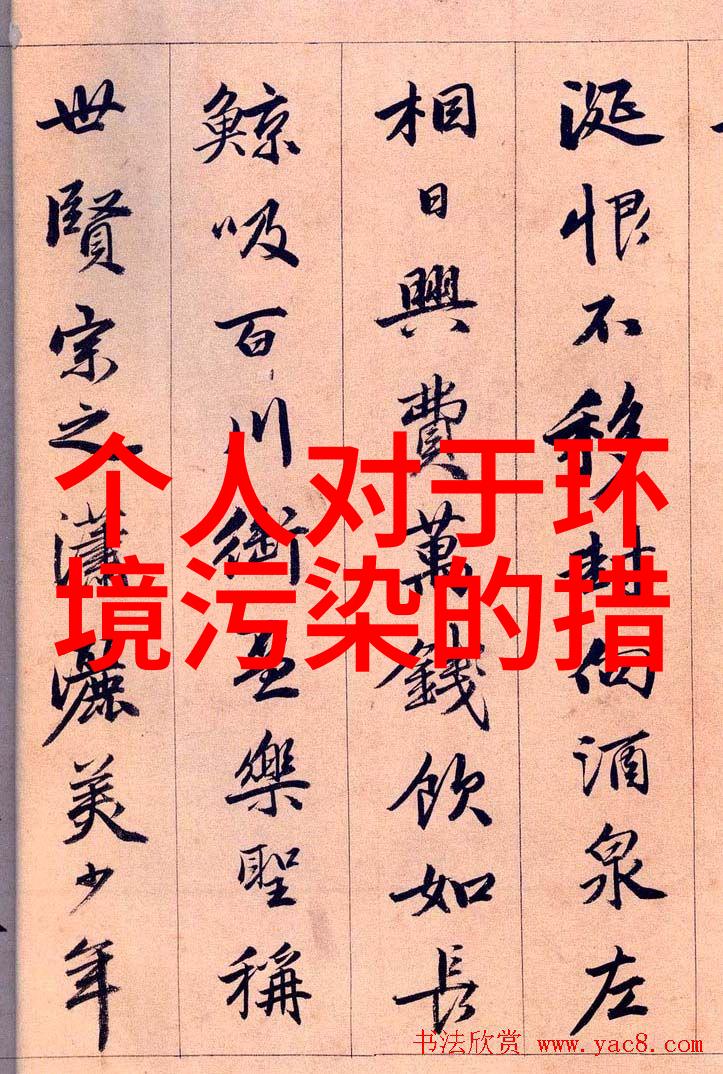 涎恨不移封向酒泉左
相日興費萬錢飲如長
鯨吸百川銜盃樂聖稱
世賢宗之瀟灑美少年
个人对于环
境污染的措
书法欣赏 www.yac8.com